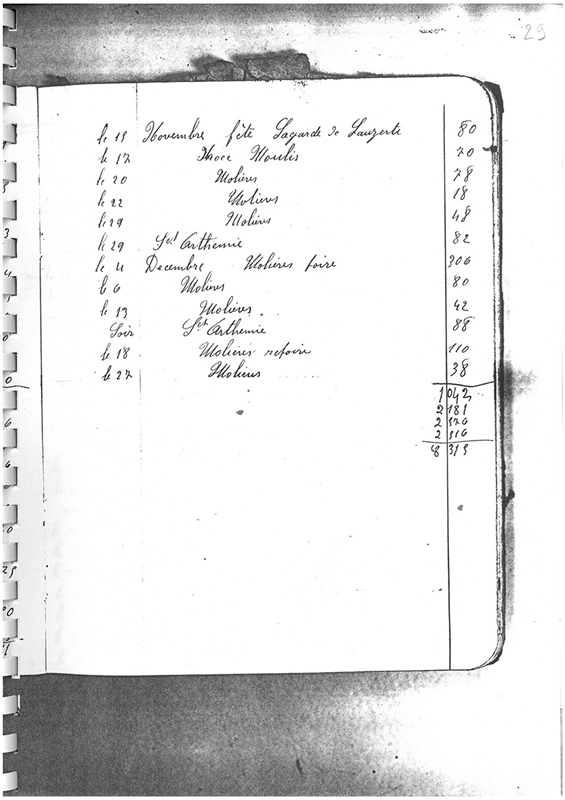 29
le 15 Novembre fête Lagarde de Lauzerte 80
le 17 Noce Moulis 70
le 20 Molières 78
le 22 Molières 18
le 29 Molières 48
le 29 Set Arthemie 82
le 4 Decembre Molières foire 306
le 6 Molières 80
le 13 Molières 42
Soir Set Arthemie 88
le 18 Molières refoire 110
le 27 Molières 38
1 042
2 181
2 576
2 516
8 315